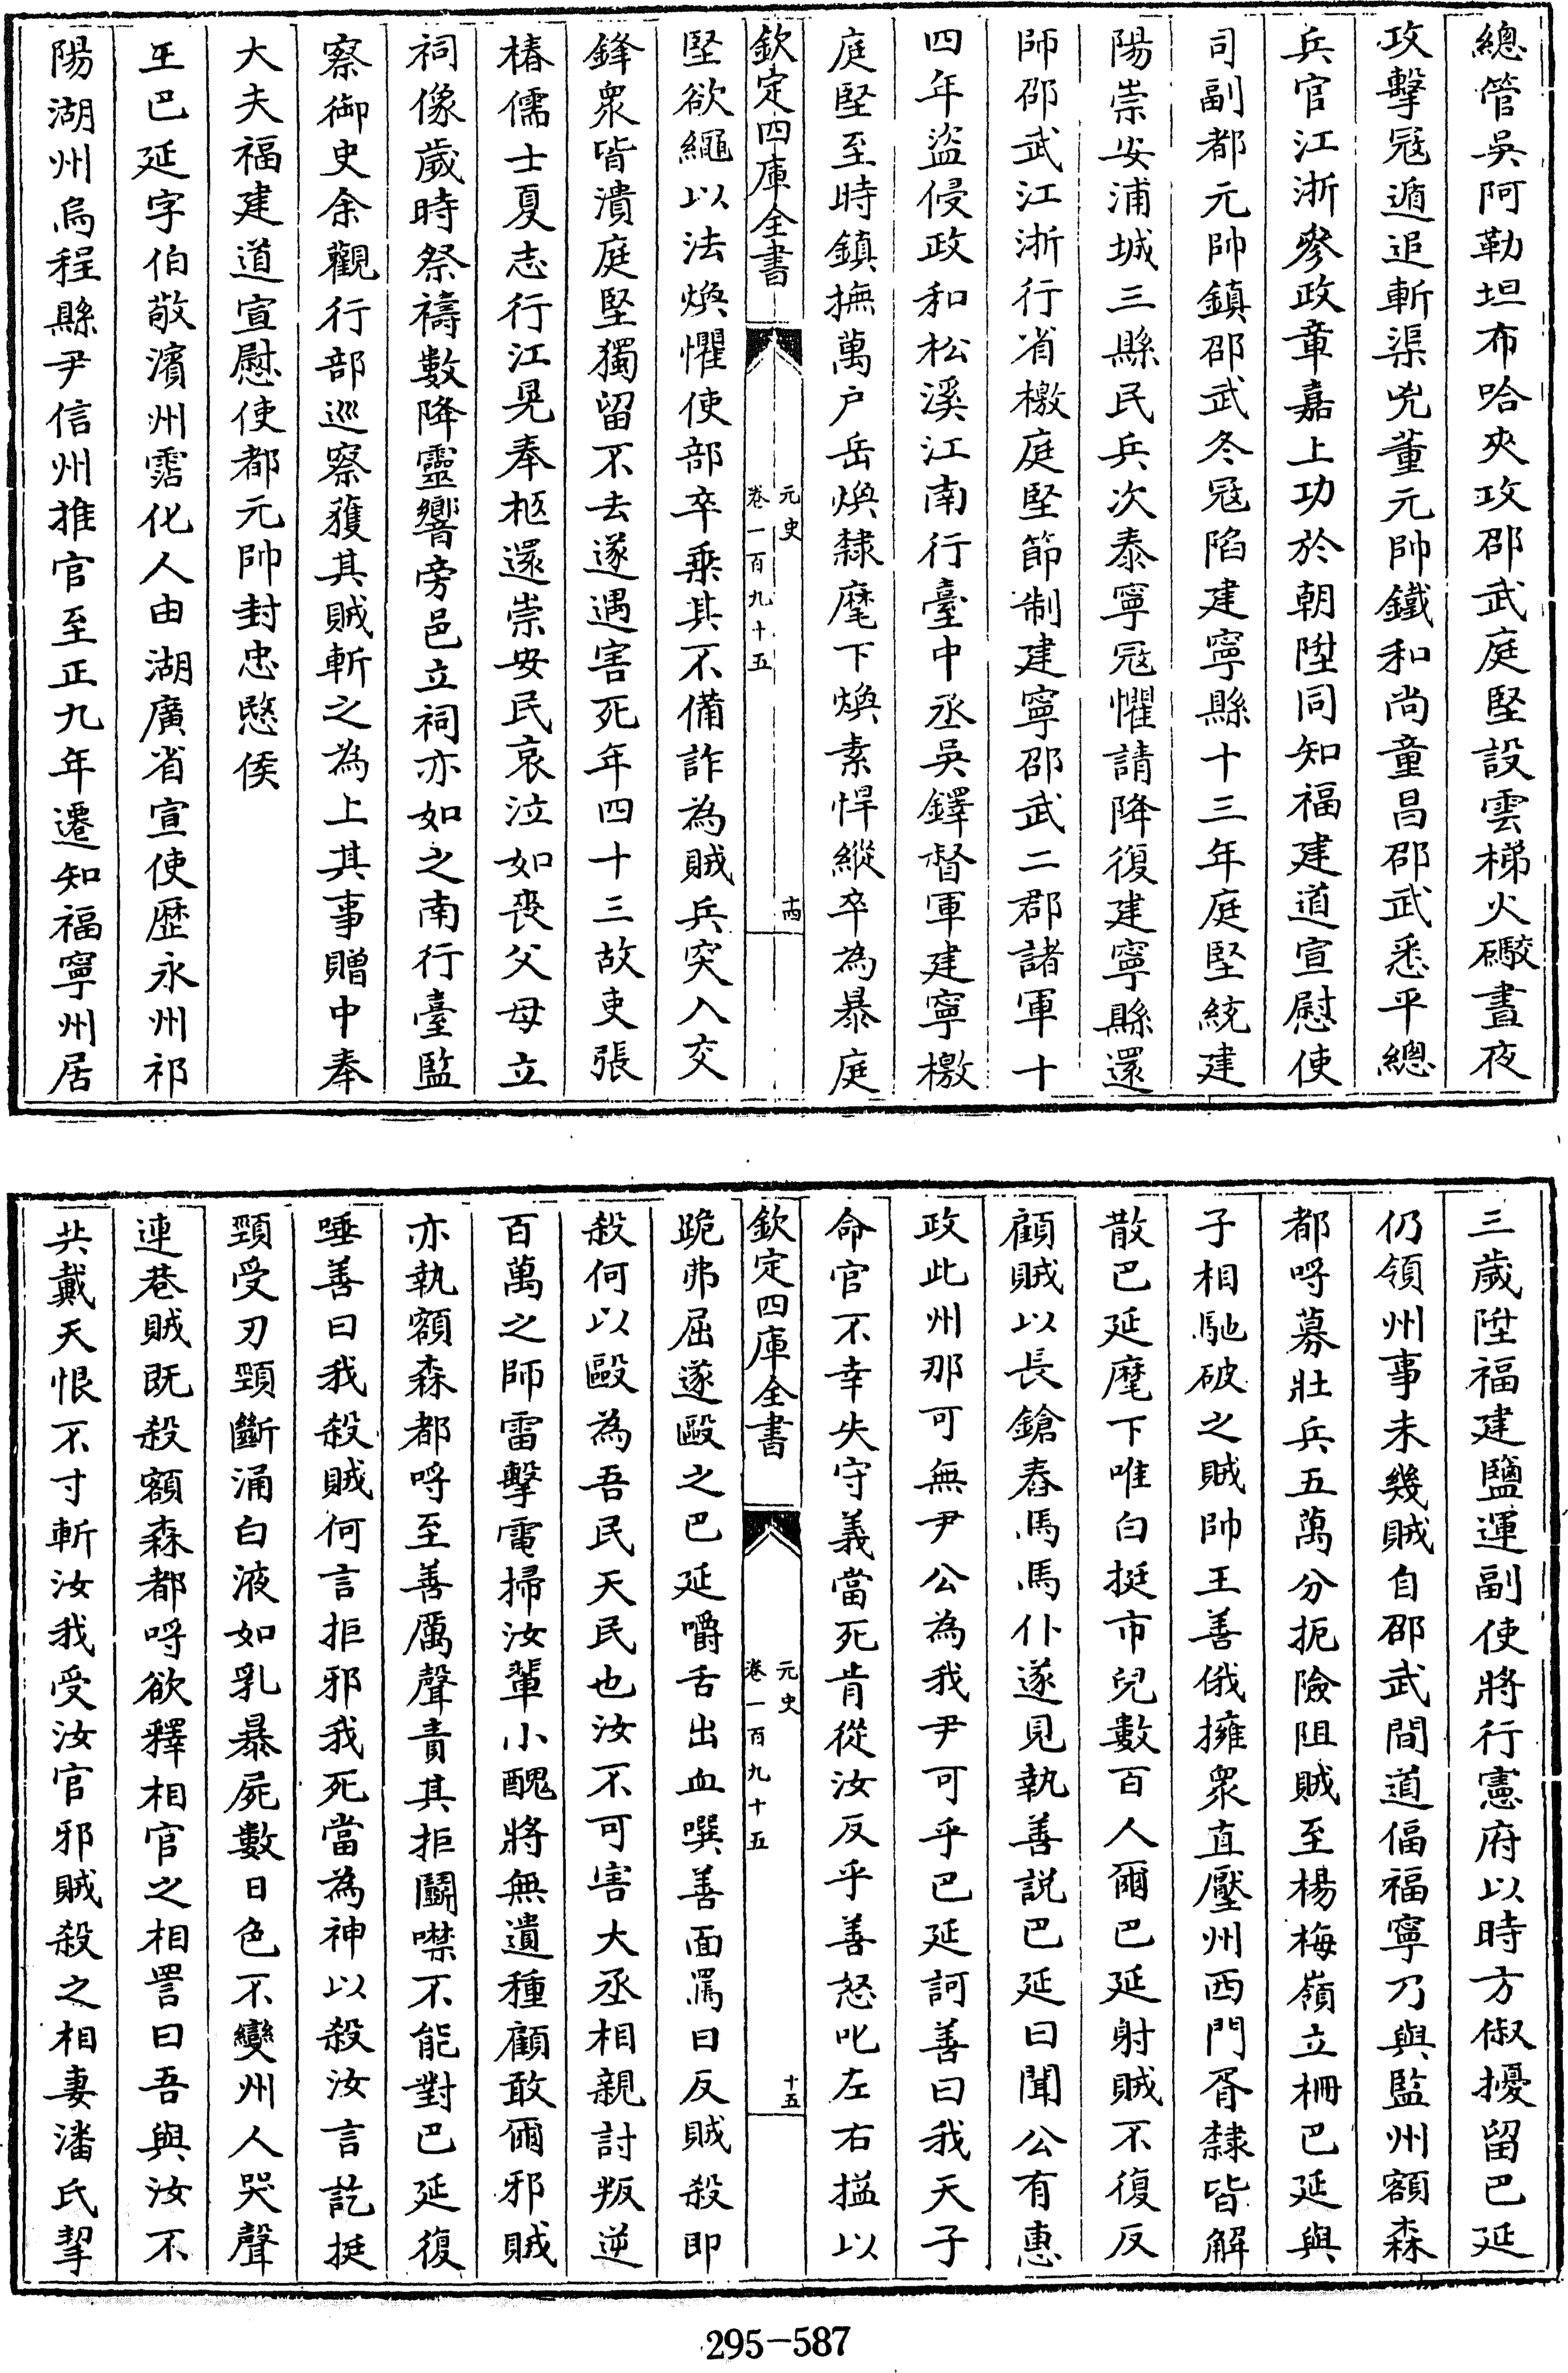 總管吳阿勒坦布哈夾攻邵武庭堅設雲梯火礮晝夜
攻擊冦遁追斬渠兇董元帥鐵和尚童昌邵武悉平總
兵官江浙參政章嘉上功於朝陞同知福建道宣慰使
司副都元帥鎮邵武冬冦陷建寧縣十三年庭堅統建
陽崇安浦城三縣民兵次泰寧冦懼請降復建寧縣還
師邵武江浙行省檄庭堅節制建寧邵武二郡諸軍十
四年盜侵政和松溪江南行臺中丞吳鐸督軍建寧檄
庭堅至時鎮撫萬户岳煥隸麾下煥素悍縱卒為暴庭
欽定四庫全書
元史
卷一百九十五
十四
堅欲繩以法煥懼使部卒乗其不備詐為賊兵突入交
鋒衆皆潰庭堅獨留不去遂遇害死年四十三故吏張
椿儒士夏志行江晃奉柩還崇安民哀泣如喪父母立
祠像歲時祭禱數降靈響旁邑立祠亦如之南行臺監
察御史余觀行部巡察獲其賊斬之為上其事贈中奉
大夫福建道宣慰使都元帥封忠愍侯
王巴延字伯敬濱州霑化人由湖廣省宣使歷永州祁
陽湖州烏程縣尹信州推官至正九年遷知福寧州居
三歲陞福建鹽運副使將行憲府以時方俶擾留巴延
仍領州事未幾賊自邵武間道偪福寧乃與監州額森
都哷募壯兵五萬分扼險阻賊至楊梅嶺立柵巴延與
子相馳破之賊帥王善俄擁衆直壓州西門胥隸皆解
散巴延麾下唯白挺市兒數百人爾巴延射賊不復反
顧賊以長鎗舂馬馬仆遂見執善説巴延曰聞公有惠
政此州那可無尹公為我尹可乎巴延訶善曰我天子
命官不幸失守義當死肯從汝反乎善怒叱左右搤以
欽定四庫全書
元史
卷一百九十五
十五
跪弗屈遂毆之巴延嚼舌出血噀善面罵曰反賊殺即
殺何以毆為吾民天民也汝不可害大丞相親討叛逆
百萬之師雷擊電掃汝輩小醜將無遺種顧敢爾邪賊
亦執額森都哷至善厲聲責其拒鬭噤不能對巴延復
唾善曰我殺賊何言拒邪我死當為神以殺汝言訖挺
頸受刃頸斷涌白液如乳暴屍數日色不變州人哭聲
連巷賊既殺額森都哷欲釋相官之相詈曰吾與汝不
共戴天恨不寸斬汝我受汝官邪賊殺之相妻潘氏挈
295-587